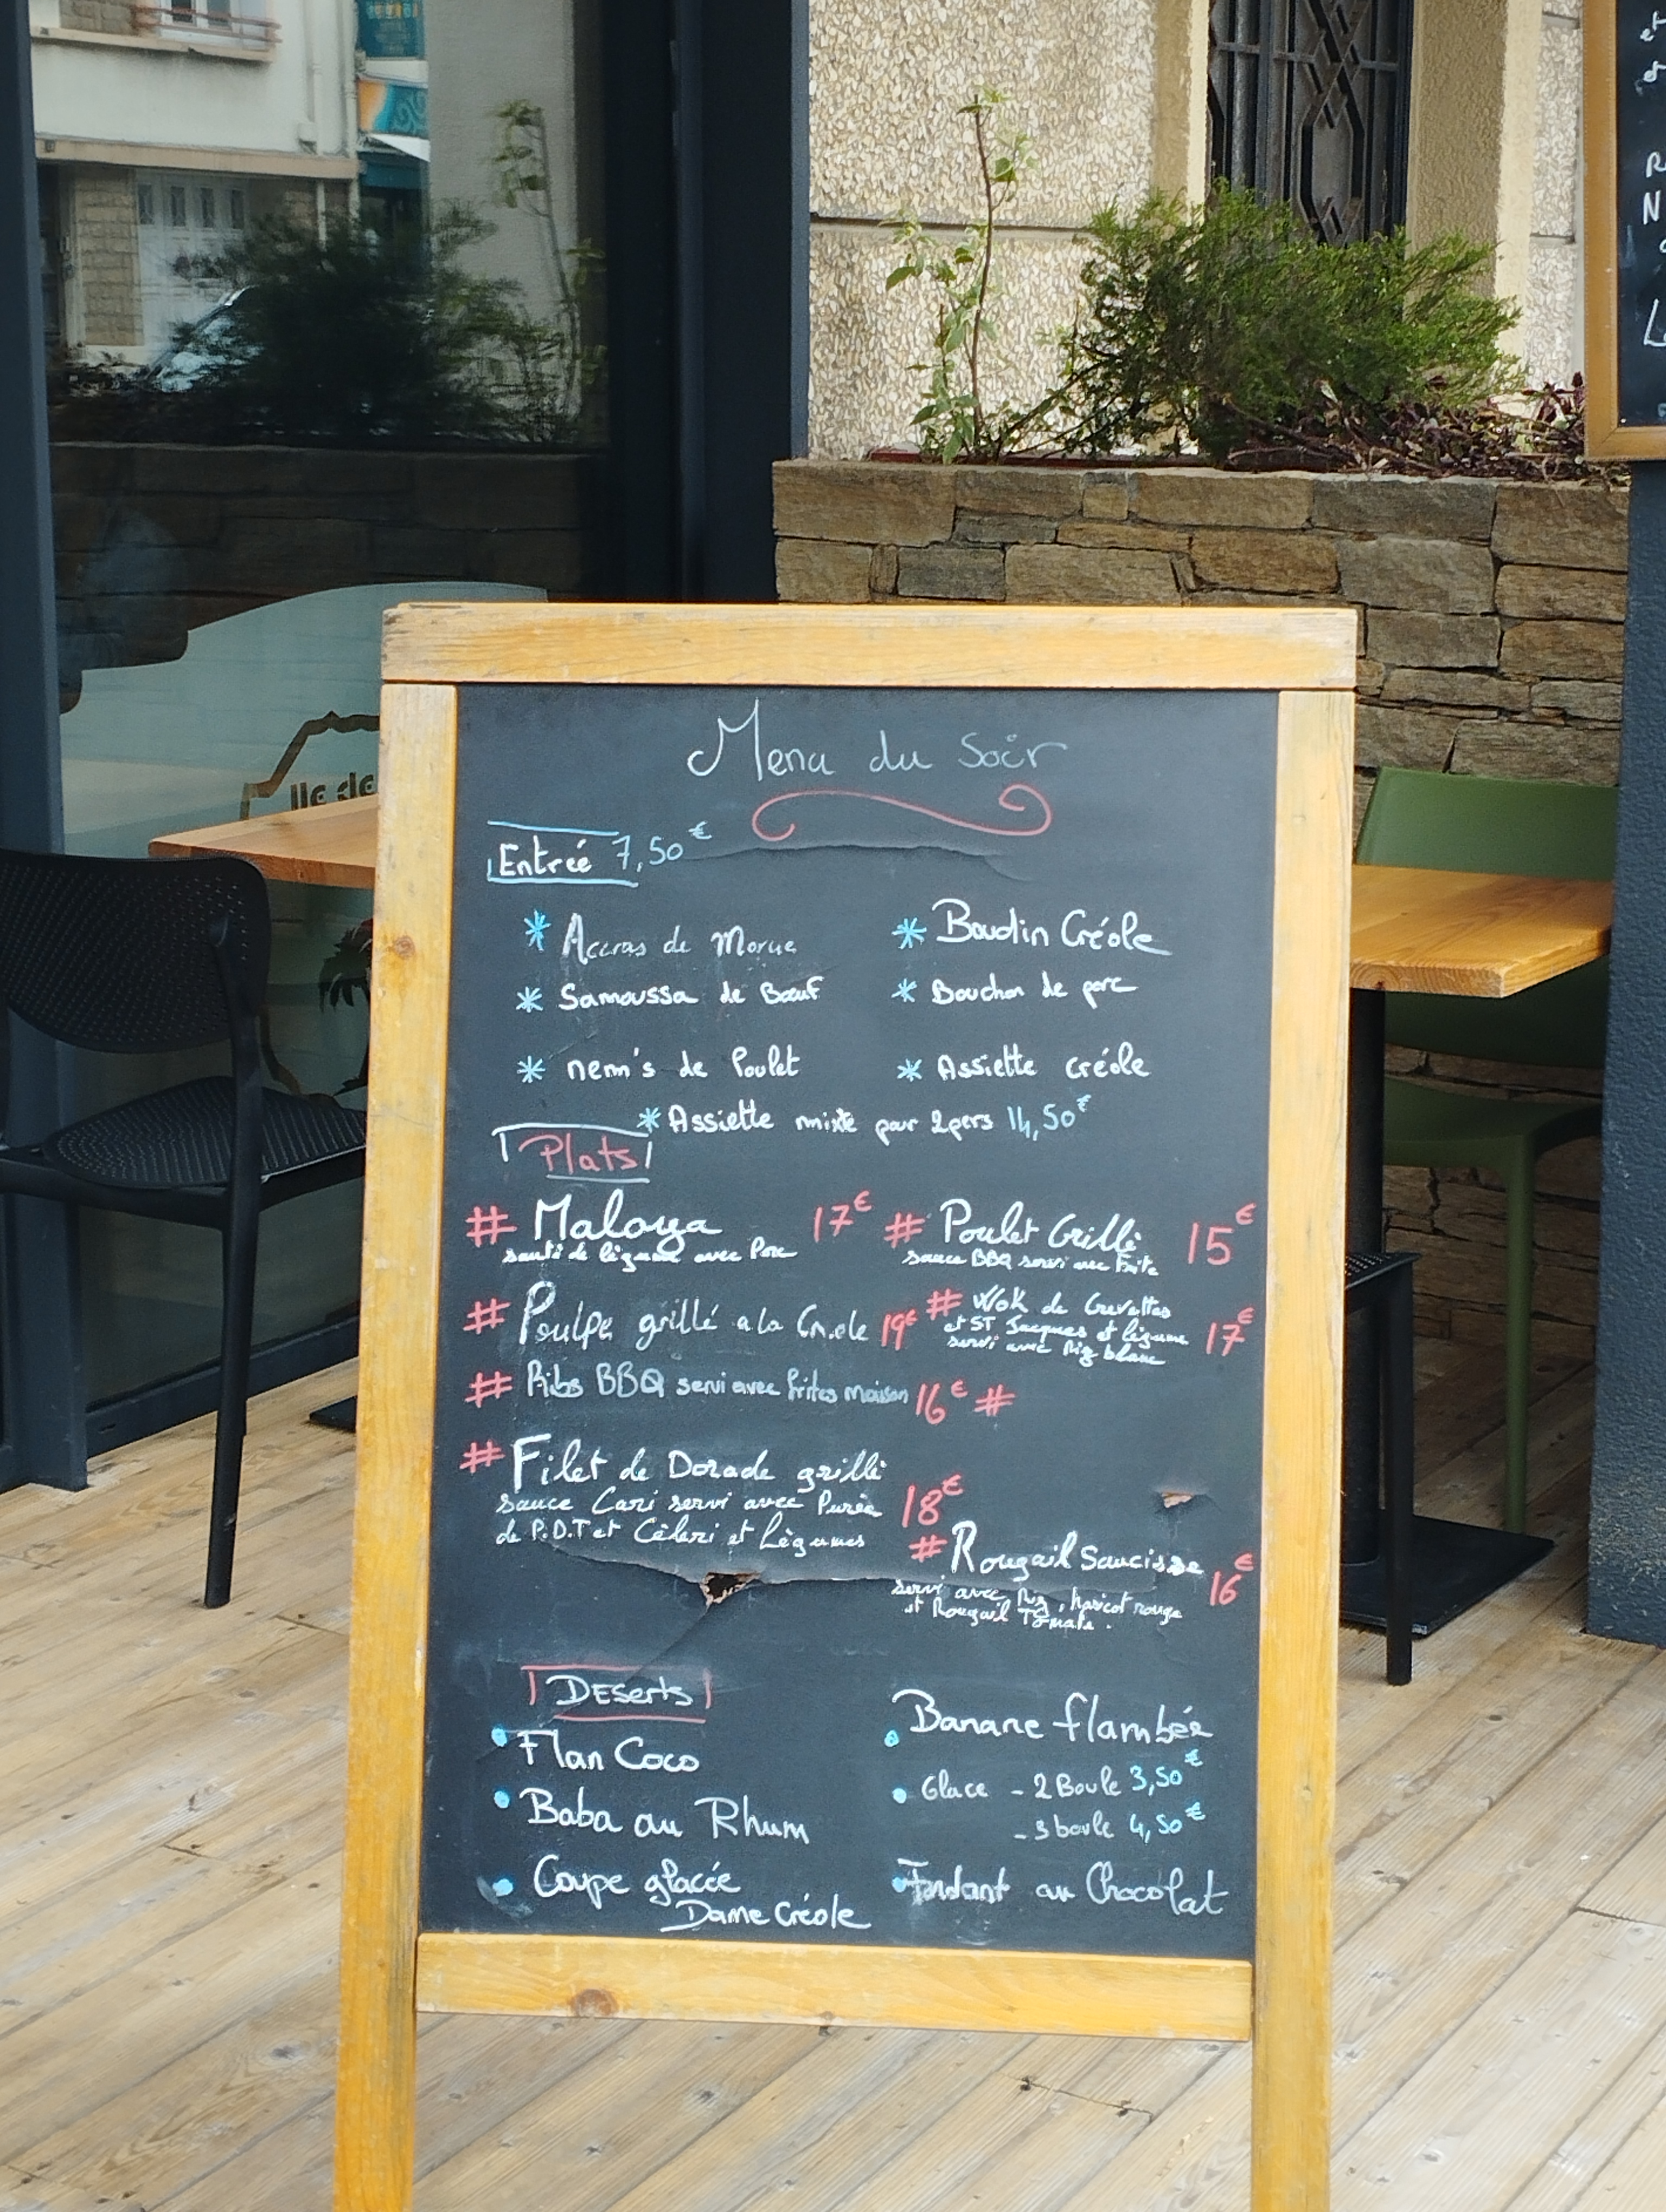 Menu du Soir
Entrée 7,50€
* Accras de Morue
* Boudin Créole
* Samoussa de Bœuf
* Bouchon de porc
* nem's de Poulet
* Assiette créole
* Assiette mixte pour 2pers 14,50€
Plats
# Maloya 17€
sauté de légume avec Porc
# Poulet Grillé 15€
sauce BBQ servi avec Frite
# Poulpe grillé a la Créole 19€
# Wok de Crevettes
et ST Jacques et légume 17€
servi avec Riz blanc
# Ribs BBQ servi avec frites maison 16€ #
# Filet de Dorade grillé
sauce Cari servi avec Purée 18€
de P.D.T et Céleri et Légumes
# Rougail Saucisse 16€
servi avec Riz, haricot rouge
et Rougail Tomate.
DEserts
• Flan Coco
• Baba au Rhum
• Coupe glacée
Dame Créole
• Banane flambée
• Glace - 2 Boule 3,50€
- 3 boule 4,50€
• Fondant au Chocolat
Ile de